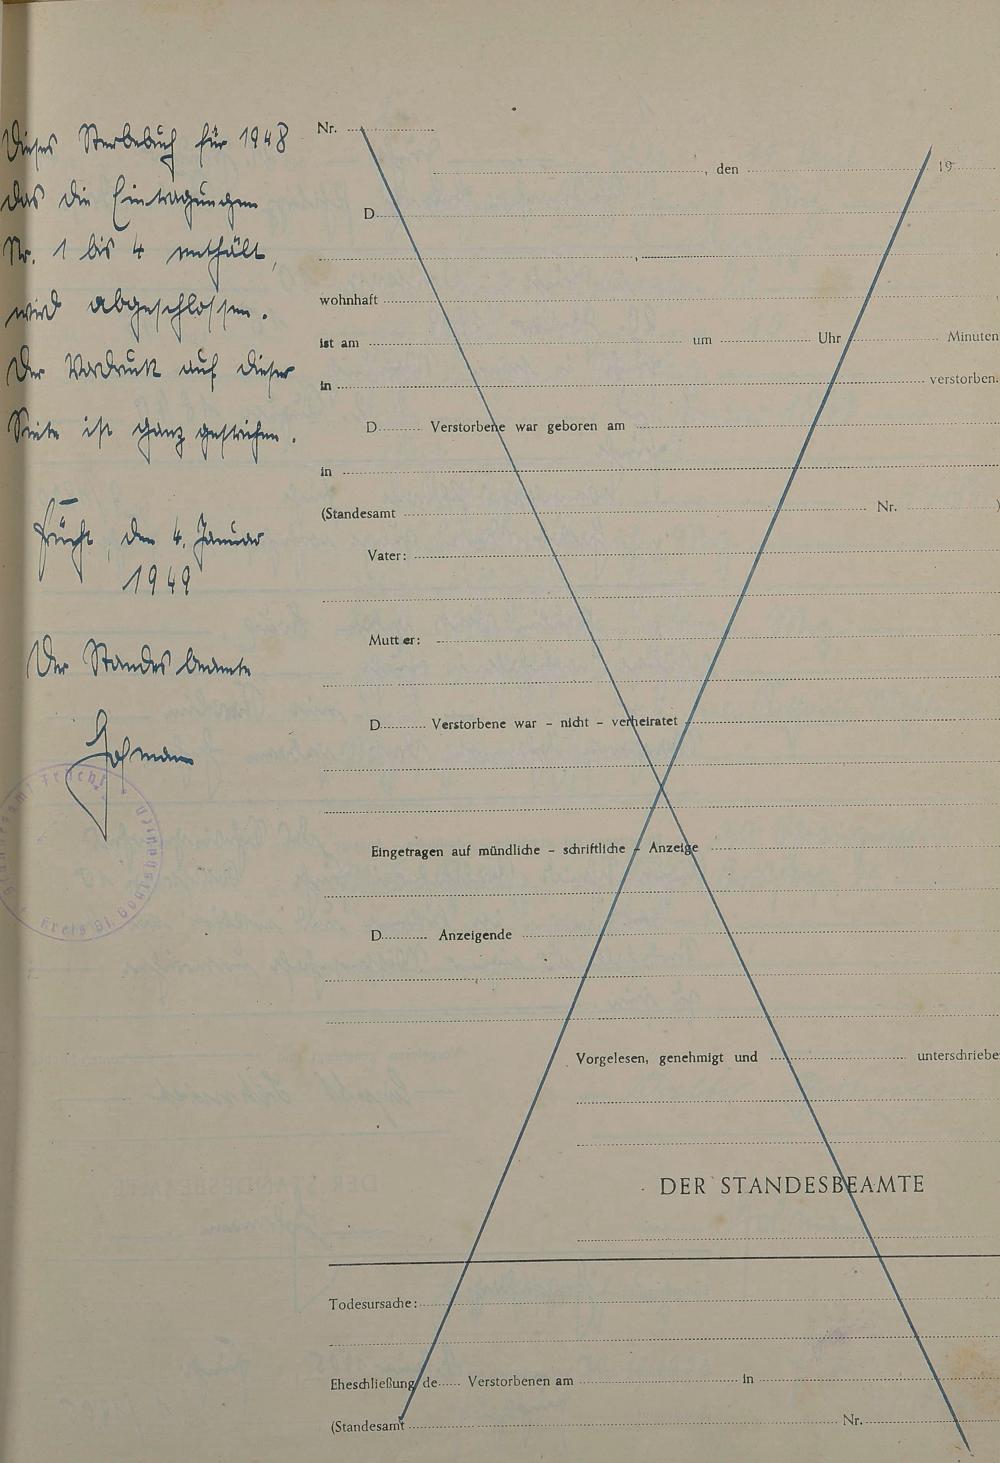 Dieses Sterbebuch für 1948
das die Eintragungen
Nr. 1 bis 4 enthält,
wird abgeschlossen.
Der Vordruck auf dieser
Seite ist ganz gestrichen.
Frücht, den 4. Januar
1949
Der Standesbeamte
Standesamt Frücht
Kreis St. Goarshausen
Nr.
, den 19
D
,
wohnhaft ,
ist am um Uhr Minuten
in verstorben.
D Verstorbene war geboren am
in
(Standesamt Nr. )
Vater:
Mutter:
D Verstorbene war – nicht – verheiratet
Eingetragen auf mündliche – schriftliche – Anzeige
D Anzeigende
Vorgelesen, genehmigt und unterschriebe
DER STANDESBEAMTE
Todesursache:
Eheschließung de Verstorbenen am in
(Standesamt Nr.